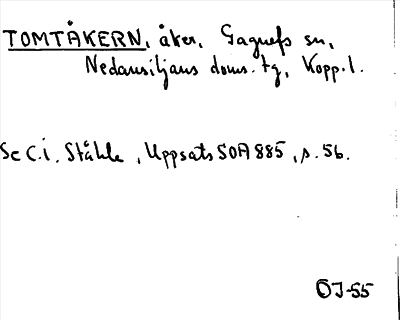 TOMTÅKERN, åker, Gagnefs sn,
Nedansiljans doms. tg, Kopp. l.
Se C.i. Ståhle, Uppsats SOA 885, s. 56.
ÖJ-55